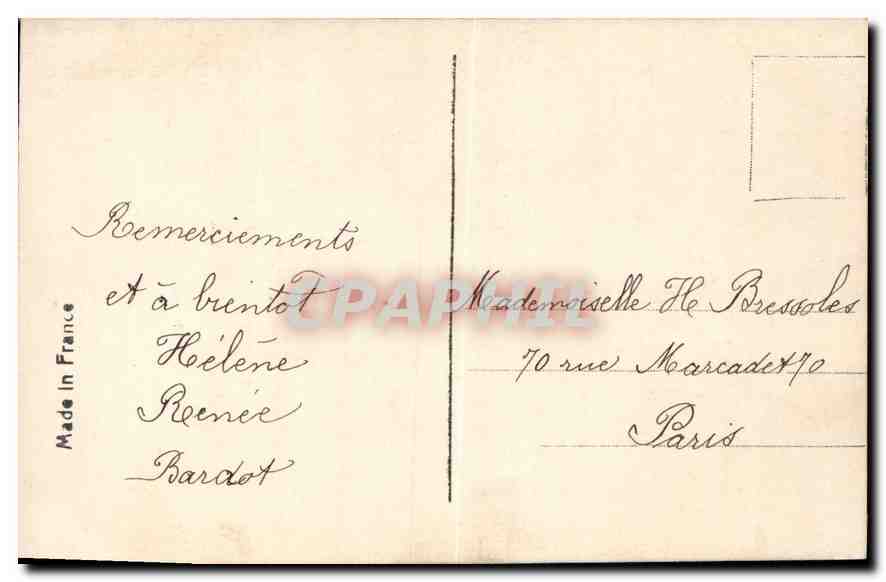 Remerciements
et à bientot
Hélène
Renée
Bardot
Made in France
CPAPHIL
Mademoiselle H Bressoles
70 rue Marcadet 70
Paris